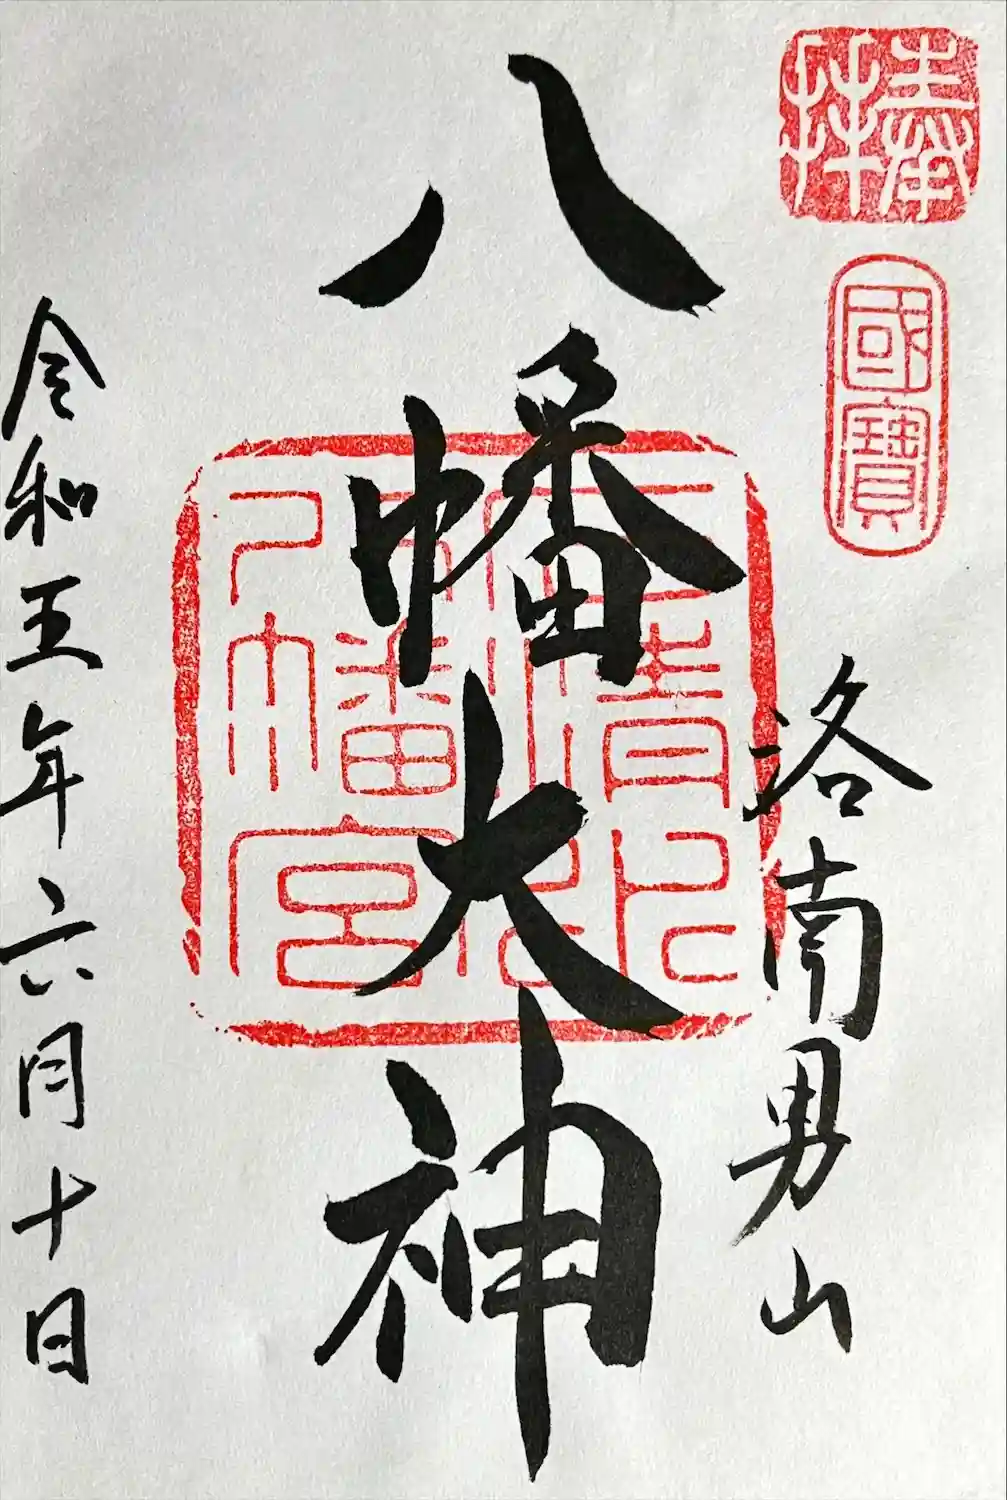 奉拝
國寶
洛南男山
八幡大神
石清水八幡宮
令和五年六月十日